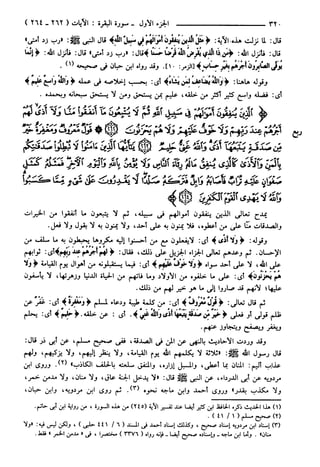 ٣٢٠ الجزء الأول ـ سورة البقرة : الآيات ( ٢٦٢ ـ ٢٦٤ )
قال: لما نزلت هذه الآية: ﴿مثل الذين ينفقون أموالهم في سبيل الله﴾ قال النبي ﷺ: «رب زد أمتي»
قال: فأنزل الله: ﴿من ذا الذي يقرض الله قرضا حسنا﴾ قال: «رب زد أمتي» قال: فأنزل الله: ﴿إنما
يوفى الصابرون أجرهم بغير حساب﴾ [الزمر: ١٠]. وقد رواه ابن حبان في صحيحه (١) .
وقوله هاهنا: ﴿والله يضاعف لمن يشاء﴾ أي: بحسب إخلاصه في عمله ﴿والله واسع عليم﴾
أي: فضله واسع كثير أكثر من خلقه، عليم بمن يستحق ومن لا يستحق سبحانه وبحمده .
﴿الذين ينفقون أموالهم في سبيل الله ثم لا يتبعون ما أنفقوا منا ولا أذى لهم
أجرهم عند ربهم ولا خوف عليهم ولا هم يحزنون ۝ قول معروف ومغفرة خير
من صدقة يتبعها أذى والله غني حليم ۝ يا أيها الذين آمنوا لا تبطلوا صدقاتكم
بالمن والأذى كالذي ينفق ماله رئاء الناس ولا يؤمن بالله واليوم الآخر فمثله كمثل
صفوان عليه تراب فأصابه وابل فتركه صلدا لا يقدرون على شيء مما كسبوا
والله لا يهدي القوم الكافرين ۝﴾
ربع
يمدح تعالى الذين ينفقون أموالهم في سبيله، ثم لا يتبعون ما أنفقوا من الخيرات
والصدقات منًا على من أعطوه، فلا يمنون به على أحد، ولا يمنون به لا بقول ولا فعل.
وقوله: ﴿ولا أذى﴾ أي: لا يفعلون مع من أحسنوا إليه مكروها يحبطون به ما سلف من
الإحسان. ثم وعدهم تعالى الجزاء الجزيل على ذلك، فقال: ﴿لهم أجرهم عند ربهم﴾ أي: ثوابهم
على الله، لا على أحد سواه ﴿ولا خوف عليهم﴾ أي: فيما يستقبلونه من أهوال يوم القيامة ﴿ولا
هم يحزنون﴾ أي: على ما خلفوه من الأولاد وما فاتهم من الحياة الدنيا وزهرتها، لا يأسفون
عليها؛ لأنهم قد صاروا إلى ما هو خير لهم من ذلك.
ثم قال تعالى: ﴿قول معروف﴾ أي: من كلمة طيبة ودعاء لمسلم ﴿ومغفرة﴾ أي: غفر عن
ظلم قولي أو فعلي ﴿خير من صدقة يتبعها أذى والله غني﴾. أي: عن خلقه. ﴿حليم﴾ أي: يحلم
ويغفر ويصفح ويتجاوز عنهم.
وقد وردت الأحاديث بالنهي عن المن في الصدقة، ففي صحيح مسلم، عن أبي ذر قال:
قال رسول الله ﷺ: «ثلاثة لا يكلمهم الله يوم القيامة، ولا ينظر إليهم، ولا يزكيهم، ولهم
عذاب أليم: المنان بما أعطى، والمسبل إزاره، والمنفق سلعته بالحلف الكاذب» (٢). وروى ابن
مردويه عن أبي الدرداء، عن النبي ﷺ قال: «لا يدخل الجنة عاق، ولا منان، ولا مدمن خمر،
ولا مكذب بقدر» وروى أحمد وابن ماجه نحوه (٣). ثم روى ابن مردويه، وابن حبان،
(١) هذا الحديث ذكره الحافظ ابن كثير أيضا عند تفسير الآية (٢٤٥) من هذه السورة ، من رواية ابن أبي حاتم.
(٢) صحيح مسلم ( ١ / ٤١ ) .
(٣) إسناد ابن مردويه إسناد صحيح ، وكذلك إسناد أحمد في المسند ( ٦ / ٤٤١ حلبي ) ، ولكن ليس فيه: «ولا
منان». وأما ابن ماجه ـ وإسناده صحيح أيضا ـ فإنه رواه ( ٣٣٧٦ ) مختصرا ، في « مدمن الخمر » فقط.